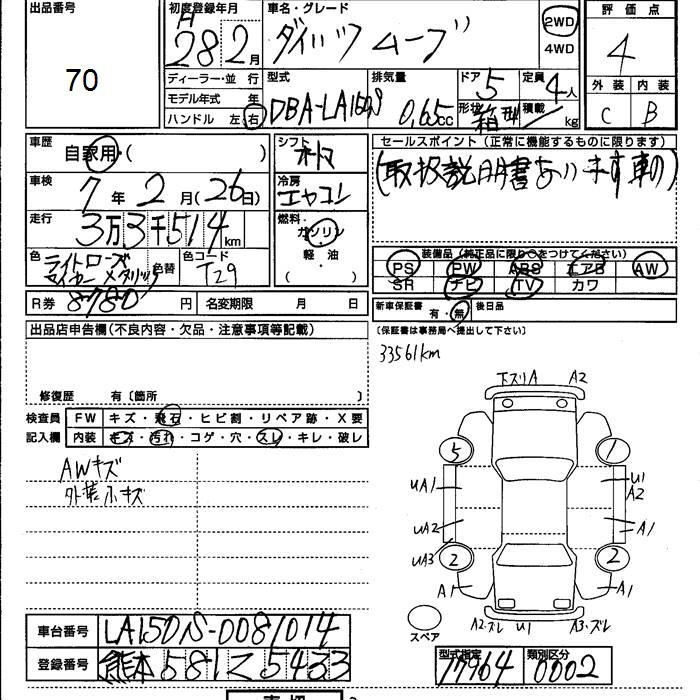 出品番号
70
初度登録年月
H 28 2月
車名・グレード
ダイハツ ムーブ
2WD
4WD
評価点
4
外装 内装
C B
ディーラー・並 行
モデル年式 年
ハンドル 左・右
型式
DBA-LA150S
排気量
0,65cc
ドア 5
形状 箱型
定員 4人
積載 kg
車歴
自家用・( )
シフト
オートマ
車検
7年 2月(26日)
冷房
エヤコン
走行
3万3千514km
燃料・
ガソリン
軽・油
( )
色
ライトローズ
マイカーメタリック
色替
色コード
T29
R券 8780 円
名変期限 月 日
セールスポイント (正常に機能するものに限ります)
(取扱説明書あります車の)
装備品(純正品に限り○をつけてください)
PS PW ABS エアB AW
SR ナビ TV カワ
新車保証書
有・無
後日品
(保証書は事務局へ提出して下さい)
33561km
出品店申告欄(不良内容・欠品・注意事項等記載)
修復歴 有〔箇所 〕
検査員
記入欄
FW キズ・飛石・ヒビ割・リペア跡・X要
内装 キズ・汚れ・コゲ・穴・スレ・キレ・破レ
AWキズ
外装小キズ
下ズリA A2
5 1
UA1 U1
A2
UA2 A1
UA3
2 2
A1 A1
スペア
A2・ズレ U1 A3・ズレ
車台番号 LA150S-0081014
登録番号 熊本581 と5433
型式指定
17964
類別区分
0002